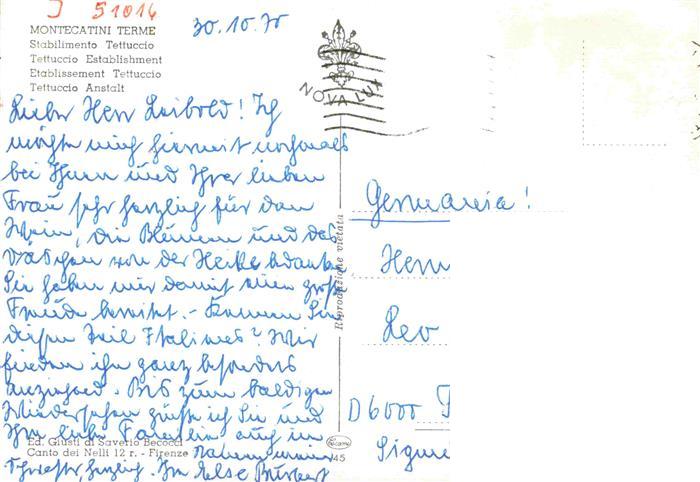 I 51014
30.10.70
MONTECATINI TERME
Stabilimento Tettuccio
Tettuccio Establishment
Etablissement Tettuccio
Tettuccio Anstalt
NOVA LUX
Lieber Herr Leibold! Ich
möchte mich hiermit nochmals
bei Ihnen und Ihrer lieben
Frau sehr herzlich für den
Wein, die Blumen und das
Väschen von der Heike bedanken
Sie haben mir damit einen große
Freude bereitet. - Kennen Sie
diesen Teil Italiens? Wir
finden ihn ganz besonders
anziehend. Bis zum baldigen
Wiedersehen grüße ich Sie und
Ihre liebe Familie auch im
Namen meiner
Schwester, herzlich. Ihre Else
Ed. Giusti di Saverio Becocci
Canto dei Nelli 12 r. - Firenze
45
Riproduzione vietata
Germania!
Herrn
Leo
D 6000